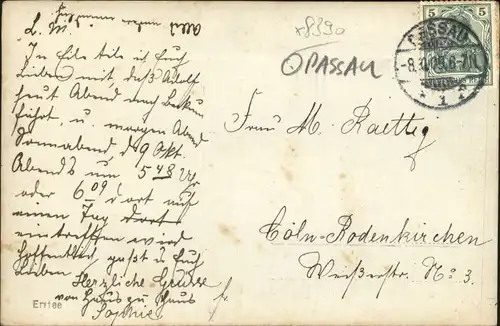 L. M.
In Eile teile ich Euch
Lieben mit, daß Adolf
heut Abend nach
fährt, u. morgen Abend
Sonnabend, d. 9 Okt.
Abends um 5 48
oder 6 09 dort auf
einen Tag dort
eintreffen wird
Hoffentlich, paßt es Euch
Lieben
Herzliche Grüsse
von Haus zu Haus
Sophie
Erriee
+8390
OPASSAU
5 5
PASSAU
1
Frau M. Raettig
Cöln-Rodenkirchen
Weißerstr. No 3.